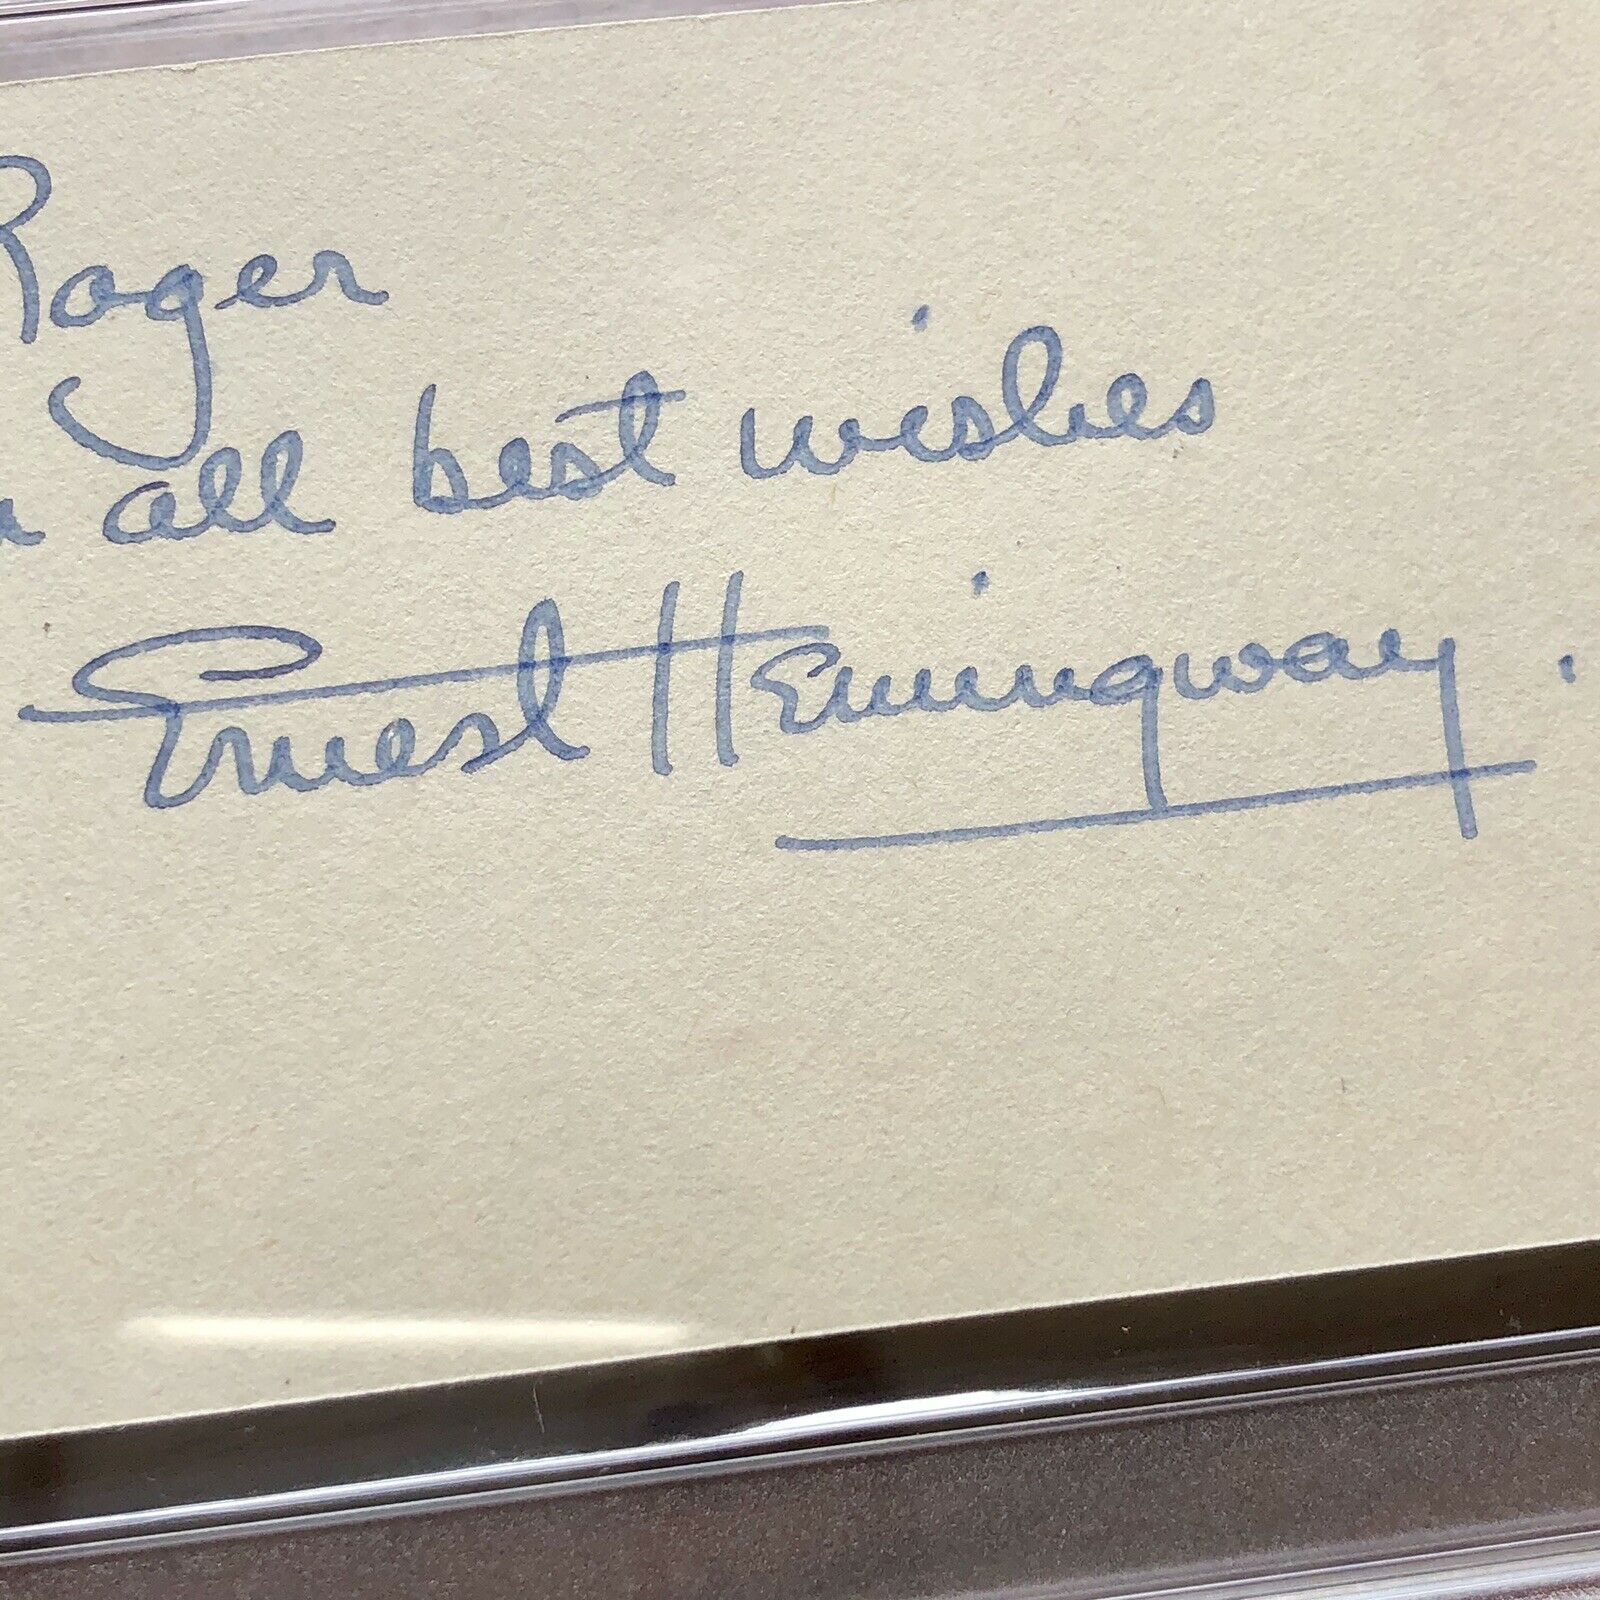 Roger
all best wishes
Ernest Hemingway.